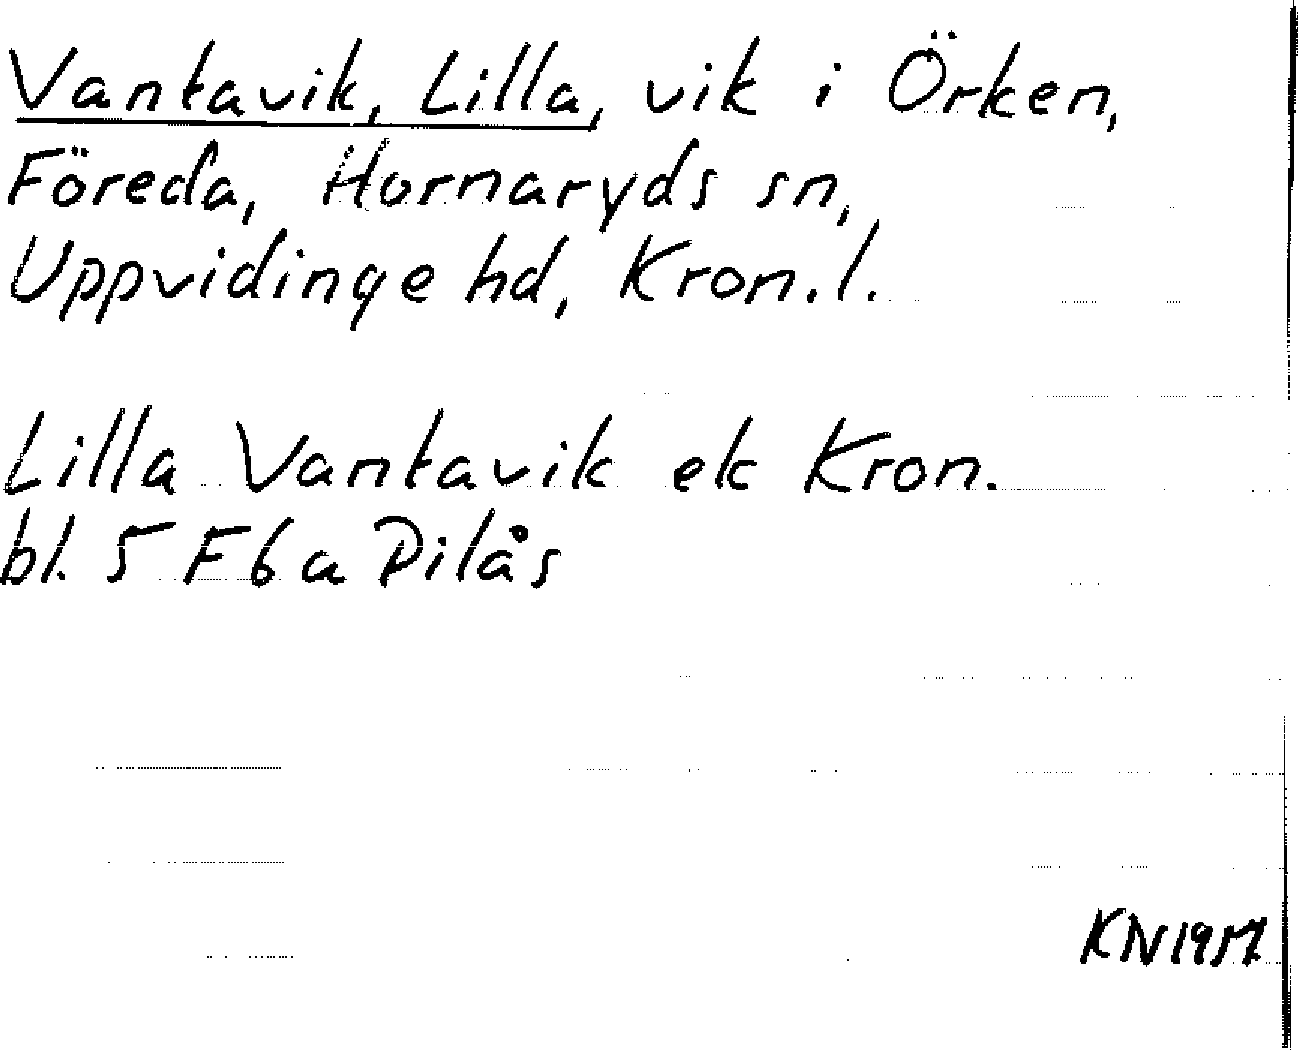 Vantavik, Lilla, vik i Örken,
Föreda, Hornaryds sn,
Uppvidinge hd, Kron. l.
Lilla Vantavik ek Kron.
bl. 5 F 6 a Dilås
KN 1957